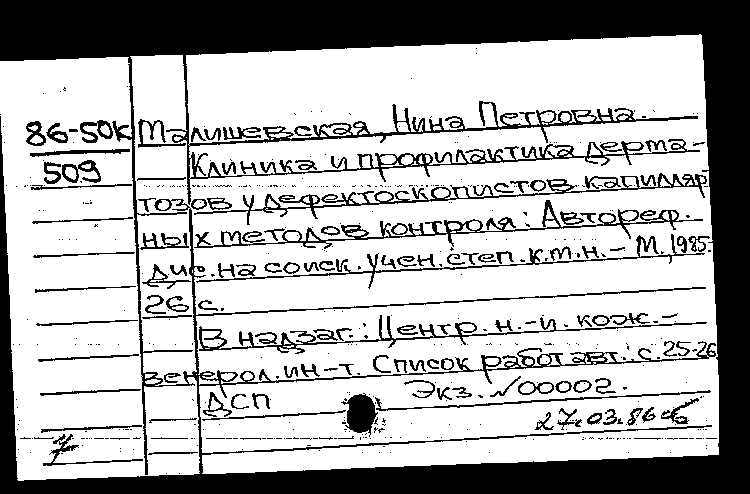 86-50к Малишевская, Нина Петровна.
509 Клиника и профилактика дерма-
тозов у дефектоскопистов капилляр
ных методов контроля: Автореф.
дис. на соиск. учен. степ. к.м.н. - М., 1985.
26 с.
В надзаг.: Центр. н.-и. кож.-
венерол. ин-т. Список работ авт.: с. 25-26
ДСП Экз. №00002.
27.03.86